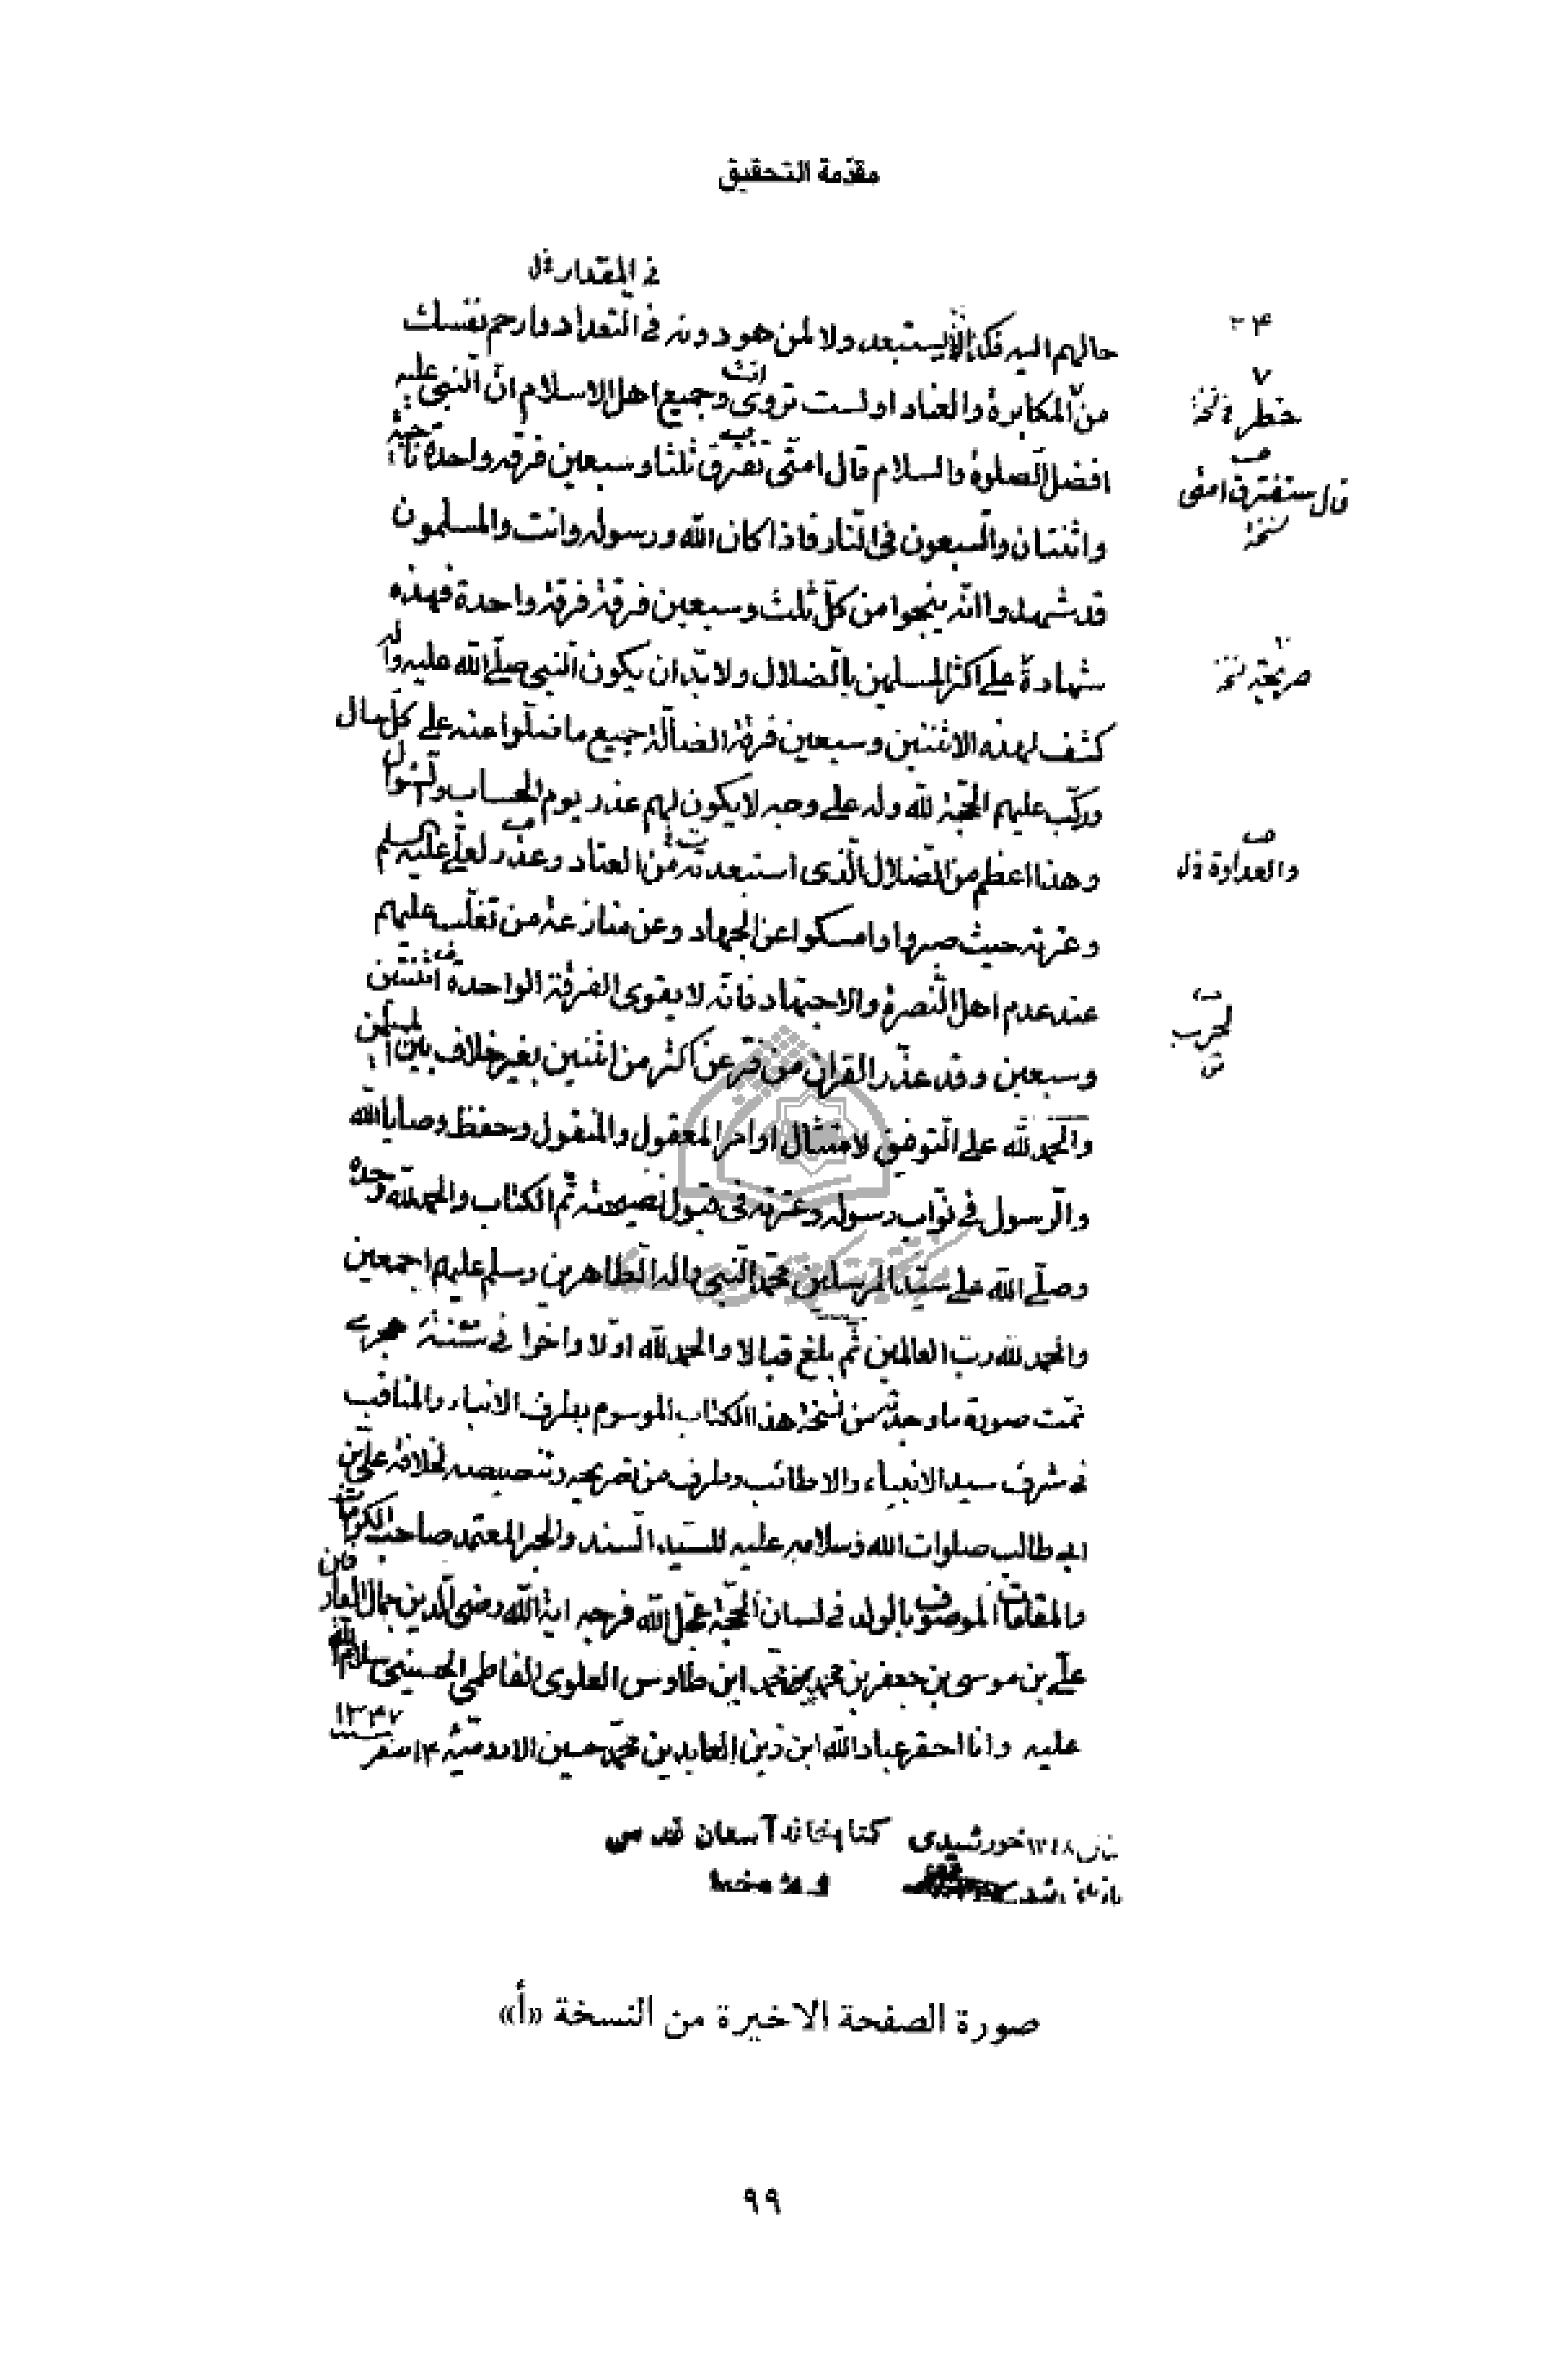 مقدّمة التحقيق
في المقدار ل
حالهم اليه فكذا لا يستبعد ولا لمن هو دونه في التعداد وارحم نفسك
من المكابرة والعناد اولست تروى انت وجميع اهل الاسلام انّ النبي عليه
خطر نسخة
افضل الصلوة والسلام قال امتى تفترق ثلثا وسبعين فرقه واحدة ناجية
قال ستفترق امتى
نسخة
واثنتان والسبعون فى النار فاذا كان الله ورسوله وانت والمسلمون
قد شهدوا انه ينجوا من كلّ ثلث وسبعين فرقة فرقة واحدة فهذه
شهادة على اكثر المسلمين بالضلال ولا بدّ ان يكون النبي صلّى الله عليه وآله
صريحة نسخة
كشف لهذه الاثنتين وسبعين فرقة الضالّة جميع ما ضلّوا عنه على كل حال
وركّب عليهم الحجّة لله وله على وجه لا يكون لهم عذر يوم الحساب والسؤال
وهذا اعظم من الضلال الّذى استبعدته من العناد وعذر لعلي عليه السلم
والعداوة ل
وعترته حيث صبروا وامسكوا عن الجهاد وعن منازعة من تغلّب عليهم
عند عدم اهل النصرة والاجتهاد فانّه لا يقوى الفرقة الواحدة اثنتين
لحرب
وسبعين وقد عذر القران من فرّ عن اكثر من اثنين بغير خلاف بين المسلمين
والحمد لله على التوفيق لامتثال اوامر المعقول والمنقول وحفظ وصايا الله
والرسول في نوّاب رسوله وعترته فى قبول نصيحته تمّ الكتاب والحمد لله وحده
وصلّى الله على سيّد المرسلين محمّد النبي واله الطاهرين وسلم عليهم اجمعين
والحمد لله ربّ العالمين ثم بلغ قبالا والحمد لله اوّلا واخرا في سنة هجرى
تمّت صورة ما وجدته من نسخة هذا الكتاب الموسوم بطرف الانباء والمناقب
في شرف سيد الانبياء والاطائب وطرف من تصريحه وتنصيصه لخلافة علىّ بن
ابى طالب صلوات الله وسلامه عليه للسيّد السند والحبر المعتمد صاحب الكرامات
والمقامات الموصوف بالولد في لسان الحجّة عجّل الله فرجه اية الله رضى الدين جمال العارفين
علىّ بن موسى بن جعفر بن محمد بن محمّد ابن طاوس العلوى الفاطمي الحسيني سلام الله
عليه وانا احقر عباد الله ابن زين العابدين محمّد حسين الاروميّة ١٤ صفر ١٣٤٧
١٣٤٨ خورشيدى كتابخانه آستان قدس
صورة الصفحة الاخيرة من النسخة «أ»
٩٩